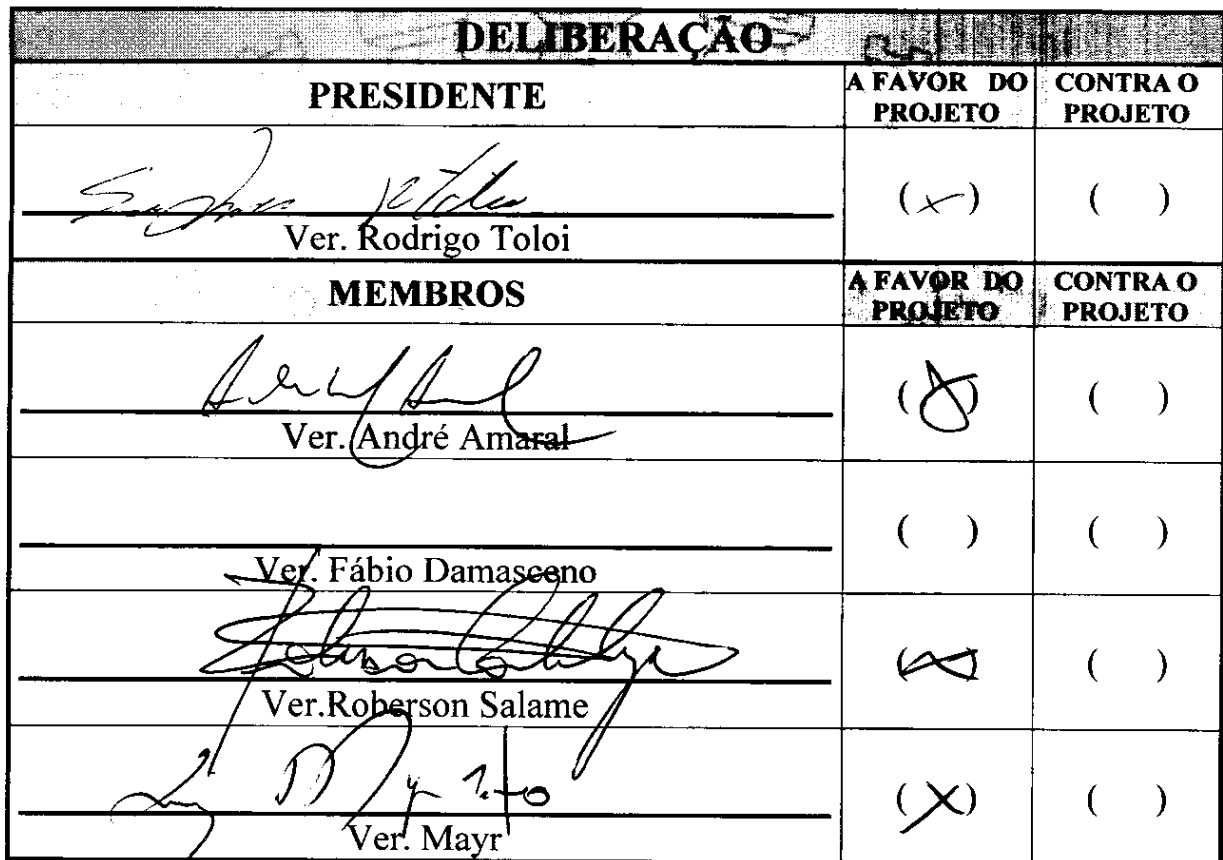 DELIBERAÇÃO
PRESIDENTE A FAVOR DO PROJETO CONTRA O PROJETO
(x) ( )
Ver. Rodrigo Toloi
MEMBROS A FAVOR DO PROJETO CONTRA O PROJETO
(X) ( )
Ver. André Amaral
( ) ( )
Ver. Fábio Damasceno
(X) ( )
Ver.Roberson Salame
(X) ( )
Ver. Mayr